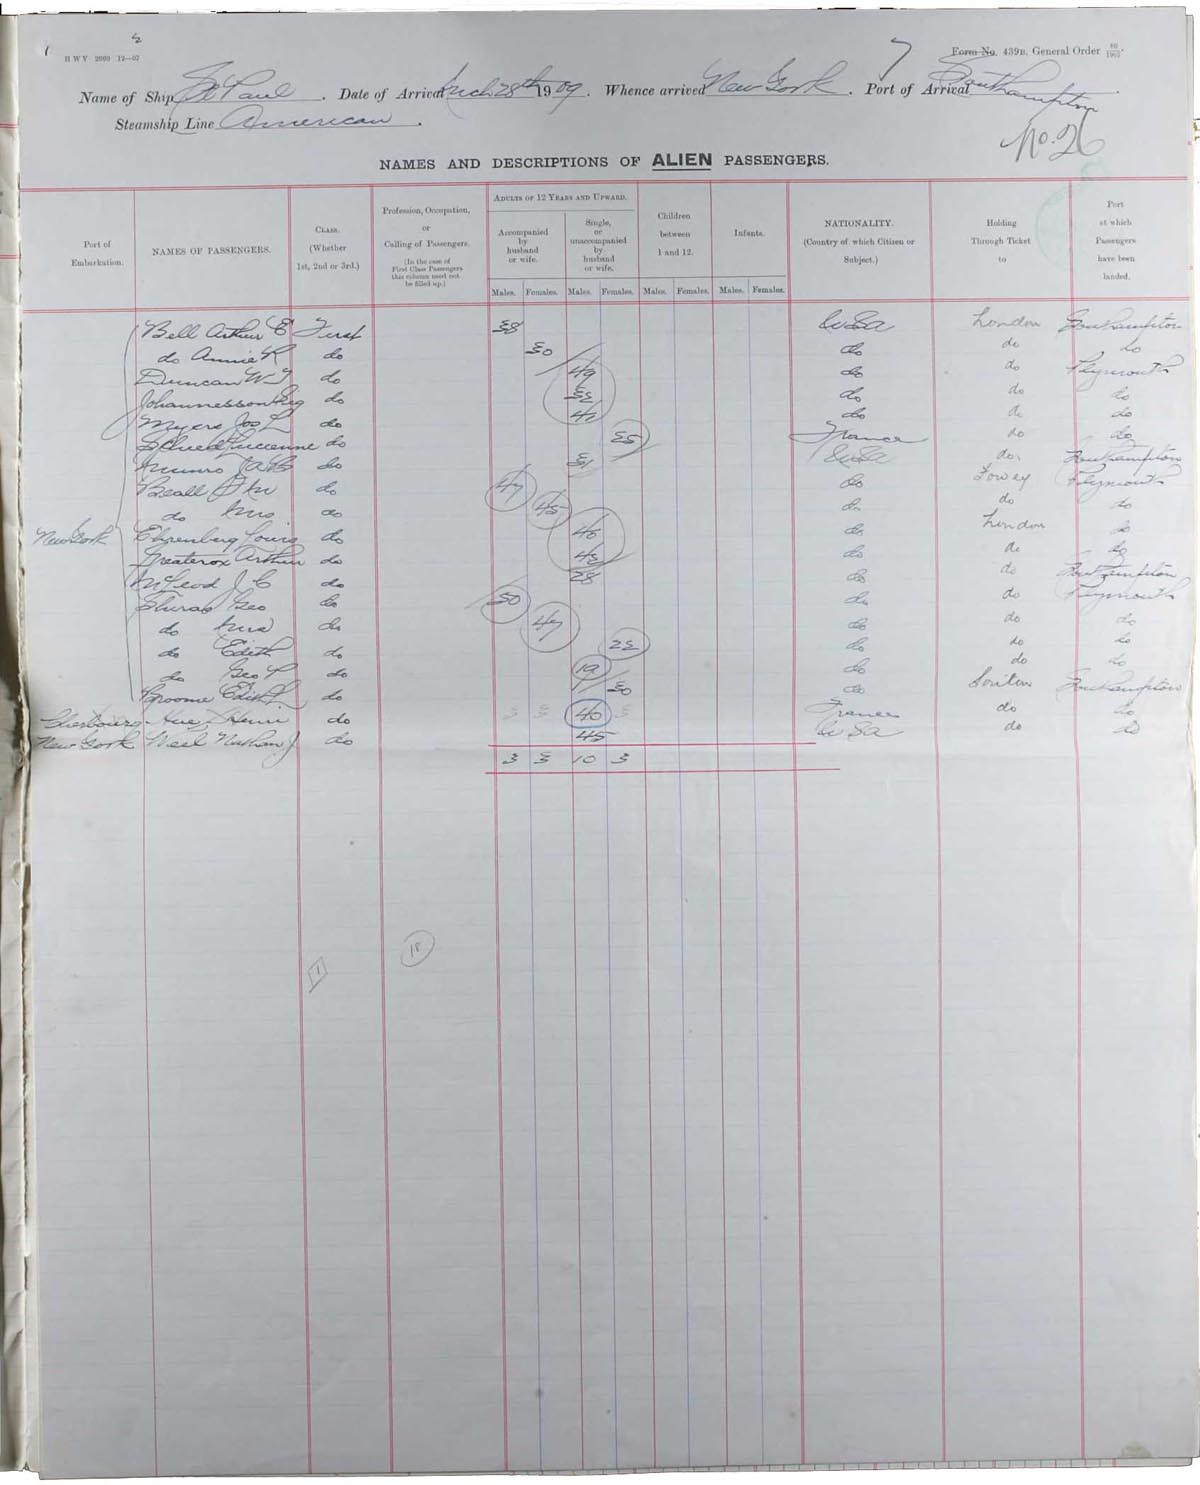 H W V 2000 12—07
Form No. 439B. General Order 10/1907.
Name of Ship St Paul. Date of Arrival March 28th 1909. Whence arrived New York. Port of Arrival Southampton
Steamship Line American.
No. 26
NAMES AND DESCRIPTIONS OF ALIEN PASSENGERS.
Port of Embarkation.
NAMES OF PASSENGERS.
CLASS. (Whether 1st, 2nd or 3rd.)
Profession, Occupation, or Calling of Passengers. (In the case of First Class Passengers this column need not be filled up.)
ADULTS OF 12 YEARS AND UPWARD.
Accompanied by husband or wife.
Single, or unaccompanied by husband or wife.
Children between 1 and 12.
Infants.
NATIONALITY. (Country of which Citizen or Subject.)
Holding Through Ticket to
Port at which Passengers have been landed.
Males. Females. Males. Females. Males. Females. Males. Females.
Bell Arthur E First 38 USA London Southampton
do Annie R do 30 do do do
Duncan W J do 49 do do Plymouth
Johannesson do do do do
Myers Jos L do 41 do do do
Lucienne do France do do
Munro do USA do Southampton
Beall do 47 do Fowey Plymouth
do Mrs do 45 do do do
New York Ehrenberg Louis do do London do
Greatorex Arthur do do do do
McLeod J C do 28 do do Southampton
Shiras Geo do 50 do do Plymouth
do Mrs do 47 do do do
do Edith do 22 do do do
do Geo do 19 do do do
Groome Edith do 30 do Southampton
Cherbourg Henri do 40 France do do
New York Weil Nathan J do 45 USA do do
3 3 10 3
1
18